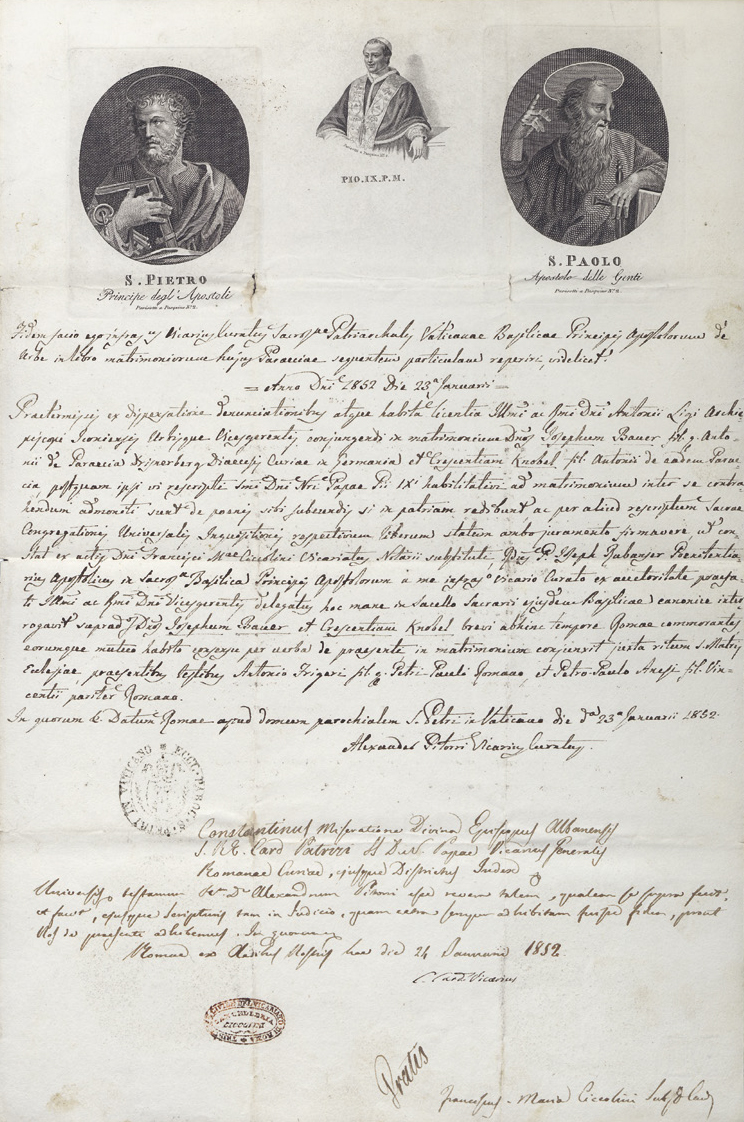 PIO.IX.P.M.
S. PIETRO
Principe degl' Apostoli
S. PAOLO
Apostolo delle Genti
Fidem facio ego infra Vicarius Curatus Patriarchalis Vaticanae Basilicae Principis Apostolorum de
Urbe in libro matrimoniorum hujus Paraeciae sequentem particulam reperiri, videlicet
= Anno Dni 1852 Die 23a Januarii =
Praetermissis ex dispensatione denunciationibus atque habita licentia Illmi ac Rmi Dni Antonii Ligi Archie-
piscopi Iconiensis Urbisque Vicesgerentis conjungendi in matrimonium Josephum Bauer fil. q. Anto-
nii de Paraecia Diaecesis Curiae in Germania et Crescentiam Knobel fil. Antonii de eadem Parae-
cia, postquam ipsi vi rescripti Smi Dni Nri Papae Pii IXi habilitati ad matrimonium inter se contra-
hendum admoniti sunt de poenis sibi subeundis si in patriam redibunt ac per aliud rescriptum Sacrae
Congregationis Universalis Inquisitionis respectivum liberum statum ambo juramento firmavere, ut con-
stat ex actis Dni Francisci Mae Ciccolini Vicariatus Notarii substituti P. Joseph Rubanser Poenitentia-
rius Apostolicus in Basilica Principis Apostolorum a me Vicario Curato ex auctoritate praefa-
ti Illmi ac Rmi Dni Vicesgerentis delegatus hoc mane in Sacello Sacrarii ejusdem Basilicae canonice inter-
rogavit Josephum Bauer et Crescentiam Knobel brevi abhinc tempore Romae commorantes
eorumque mutuo habito consensu per verba de praesenti in matrimonium conjunxit juxta ritum S. Matris
Ecclesiae, praesentibus testibus Antonio Frigeri fil. q. Petri Pauli Romano, et Petro-Paulo Anesi fil. Vin-
centii pariter Romano.
In quorum &. Datum Romae apud domum parochialem S. Petri in Vaticano die da 23a Januarii 1852.
Alexander Pitorri Vicarius Curatus.
Constantinus Miseratione Divina Episcopus Albanensis
S. R. E. Card. Patrizi SS D. N. Papae Vicarius Generalis
Romanae Curiae, ejusque Districtus Judex
Universis testamur Dm Alexandrum Pitorri esse revera talem, qualem se supra fecit,
et facit, ejusque scripturis tam in Judicio, quam extra semper adhibitam fuisse fidem, prout
Nos de praesenti adhibemus. In quorum
Romae ex Aedibus Nostris hac die 24 Januarii 1852
C. Card. Vicarius
Gratis
Franciscus-Maria Ciccolini